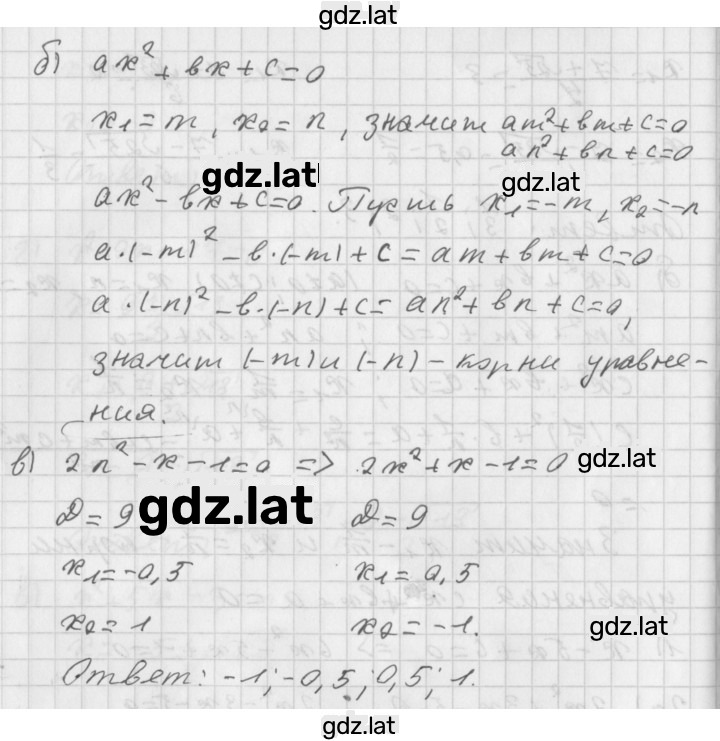 gdz.lat
б) ax² + вx + c = 0
x₁ = m, x₂ = n, значит am² + вm + c = 0
an² + вn + c = 0
gdz.lat
ax² - вx + c = 0. Пусть x₁ = -m, x₂ = -n
a·(-m)² - в·(-m) + c = am + вm + c = 0
a·(-n)² - в·(-n) + c = an² + вn + c = 0,
значит (-m) и (-n) - корни уравне-
ния.
в) 2n² - x - 1 = 0 => 2x² + x - 1 = 0 gdz.lat
D = 9 gdz.lat D = 9
x₁ = -0,5 x₁ = 0,5
x₂ = 1 x₂ = -1. gdz.lat
Ответ: -1; -0,5; 0,5; 1.
gdz.lat